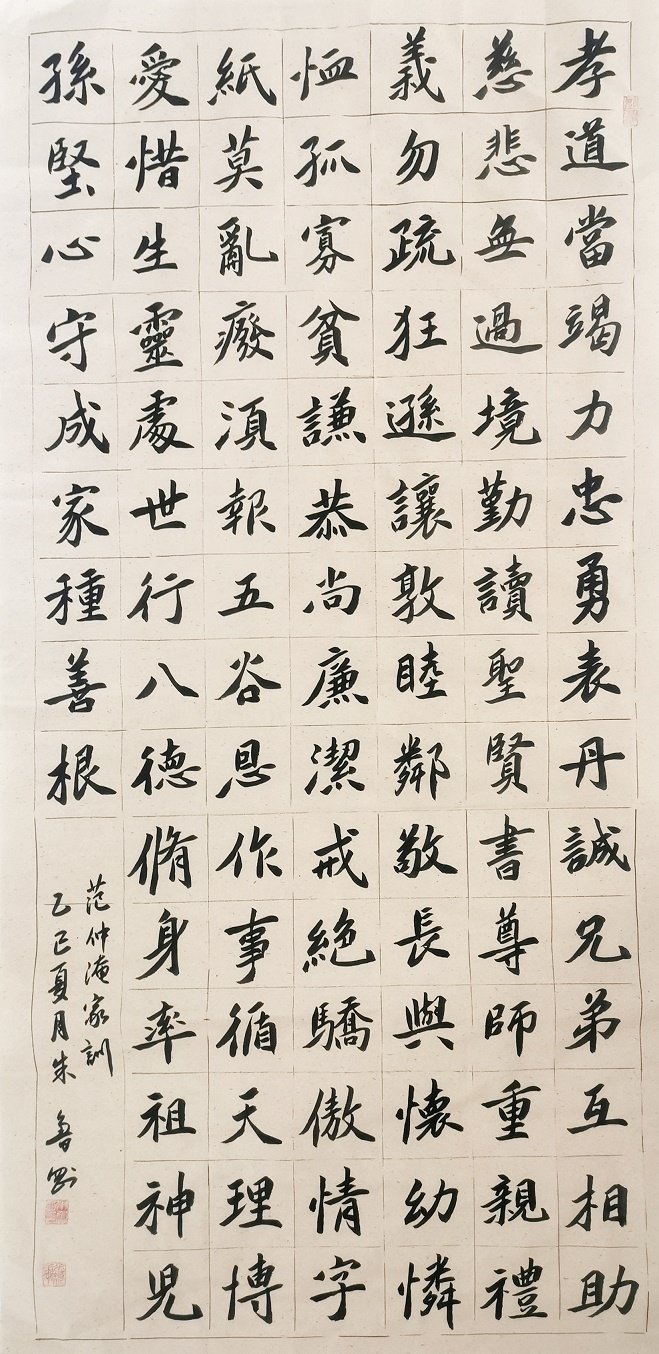 孝道當竭力忠勇表丹誠兄弟互相助
慈悲無過境勤讀聖賢書尊師重親禮
義勿疏狂遜讓敦睦鄰敬長與懐幼憐
恤孤寡貧謙恭尚廉潔戒絶驕傲情字
紙莫亂廢須報五谷恩作事循天理博
愛惜生靈處世行八德脩身率祖神児
孫堅心守成家種善根
范仲淹家訓
乙巳夏月朱魯剛